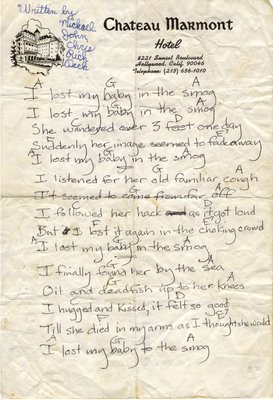 Written by
Michael
John
Chris
Rick
Chateau Marmont
Hotel
8221 Sunset Boulevard
Hollywood, Calif. 90046
Telephone: (213) 656-1010
A G A
I lost my baby in the smog
G A
I lost my baby in the smog
D
She wandered over 3 feet one day
F
Suddenly her image seemed to fade away
A G A
I lost my baby in the smog
I listened for her old familiar cough
G A
It seemed to come from far off
D
I followed her hack as it got loud
F
But I lost it again in the choking crowd
A G A
I lost my baby in the smog
A
I finally found her by the sea
G A
Oil and deadfish up to her knees
D
I hugged and kissed, it felt so good
F
Till she died in my arms as I thought she would
A G A
I lost my baby to the smog